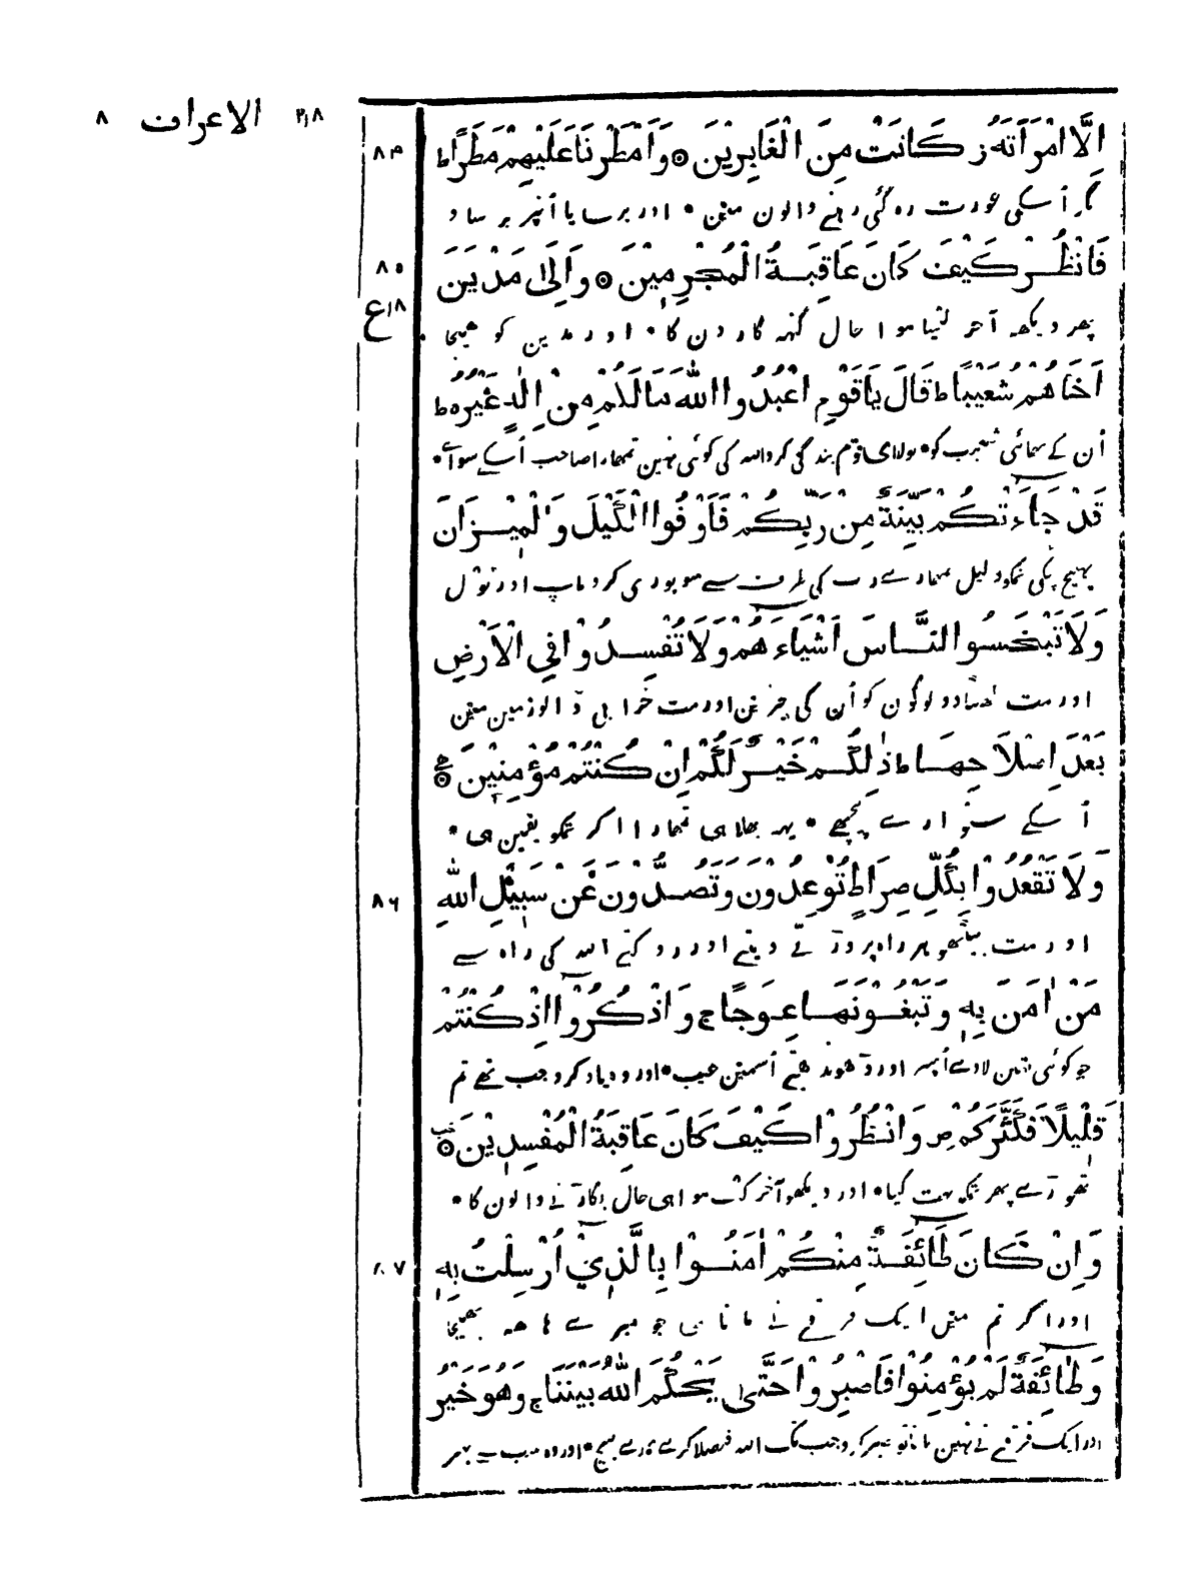 ٢١٨ الاعراف ٨
اِلَّا امْرَاَتَهُ ز كَانَتْ مِنَ الْغَابِرِيْنَ ⊙ وَاَمْطَرْنَا عَلَيْهِمْ مَطَرًا ط
٨٤
مگر اُسکی عورت رہ گئی رہنے والون مین • اور برسایا اُنپر برساو
فَانْظُرْ كَيْفَ كَانَ عَاقِبَةُ الْمُجْرِمِيْنَ ⊙ وَاِلَىٰ مَدْيَنَ
٨٥
١٨ ع
پھر دیکھہ آخر کیسا ہوا حال گنہہ گارون کا • اور مدین کو بھیجا
اَخَاهُمْ شُعَيْبًا ط قَالَ يَاقَوْمِ اعْبُدُوا اللّٰهَ مَا لَكُمْ مِنْ اِلٰهٍ غَيْرُهُ ط
اُن کے بھائی شعیب کو • بولا ای قوم بندگی کرو اللہ کی کوئی نہین تمھارا صاحب اُسکے سواے •
قَدْ جَاءَتْكُمْ بَيِّنَةٌ مِنْ رَبِّكُمْ فَاَوْفُوا الْكَيْلَ وَالْمِيْزَانَ
پہنچ چکی تمکو دلیل تمھارے رب کی طرف سے سو پوری کرو ماپ اور تول
وَلَا تَبْخَسُوا النَّاسَ اَشْيَاءَهُمْ وَلَا تُفْسِدُوْا فِي الْاَرْضِ
اور مت گھٹا دو لوگون کو اُن کی چیزین اور مت خرابی ڈالو زمین مین
بَعْدَ اِصْلَاحِهَا ط ذٰلِكُمْ خَيْرٌ لَكُمْ اِنْ كُنْتُمْ مُؤْمِنِيْنَ ⊙
اُسکے سنوارے پیچھے • یہہ بھلا ہی تمھارا اگر تمکو یقین ہی •
وَلَا تَقْعُدُوْا بِكُلِّ صِرَاطٍ تُوْعِدُوْنَ وَتَصُدُّوْنَ عَنْ سَبِيْلِ اللّٰهِ
٨٦
اور مت بیٹھو ہر راہ پر ڈر تے دینے اور روکنے اللہ کی راہ سے
مَنْ اٰمَنَ بِهٖ وَتَبْغُوْنَهَا عِوَجًا ج وَاذْكُرُوْا اِذْ كُنْتُمْ
جو کوئی یقین لاوے اُپسر اور ڈھونڈھتے اُسمین عیب • اور وہ یاد کرو جب تھے تم
قَلِيْلًا فَكَثَّرَكُمْ ص وَانْظُرُوْا كَيْفَ كَانَ عَاقِبَةُ الْمُفْسِدِيْنَ ⊙
تھوڑے پھر تمکو بہت کیا • اور دیکھو آخر کیسا ہوا ہی حال بگاڑنے والون کا •
وَاِنْ كَانَ طَائِفَةٌ مِنْكُمْ اٰمَنُوْا بِالَّذِيْ اُرْسِلْتُ بِهٖ
٨٧
اور اگر تم مین ایک فرقے نے مانا ہی جو میرے ہاتھہ بھیجا
وَطَائِفَةٌ لَمْ يُؤْمِنُوْا فَاصْبِرُوْا حَتَّىٰ يَحْكُمَ اللّٰهُ بَيْنَنَا ج وَهُوَ خَيْرُ
اور ایک فرقے نے نہین مانا تو صبر کرو جب تک اللہ فیصلا کرے ہمارے بیچ • اور وہ سب سے بہتر